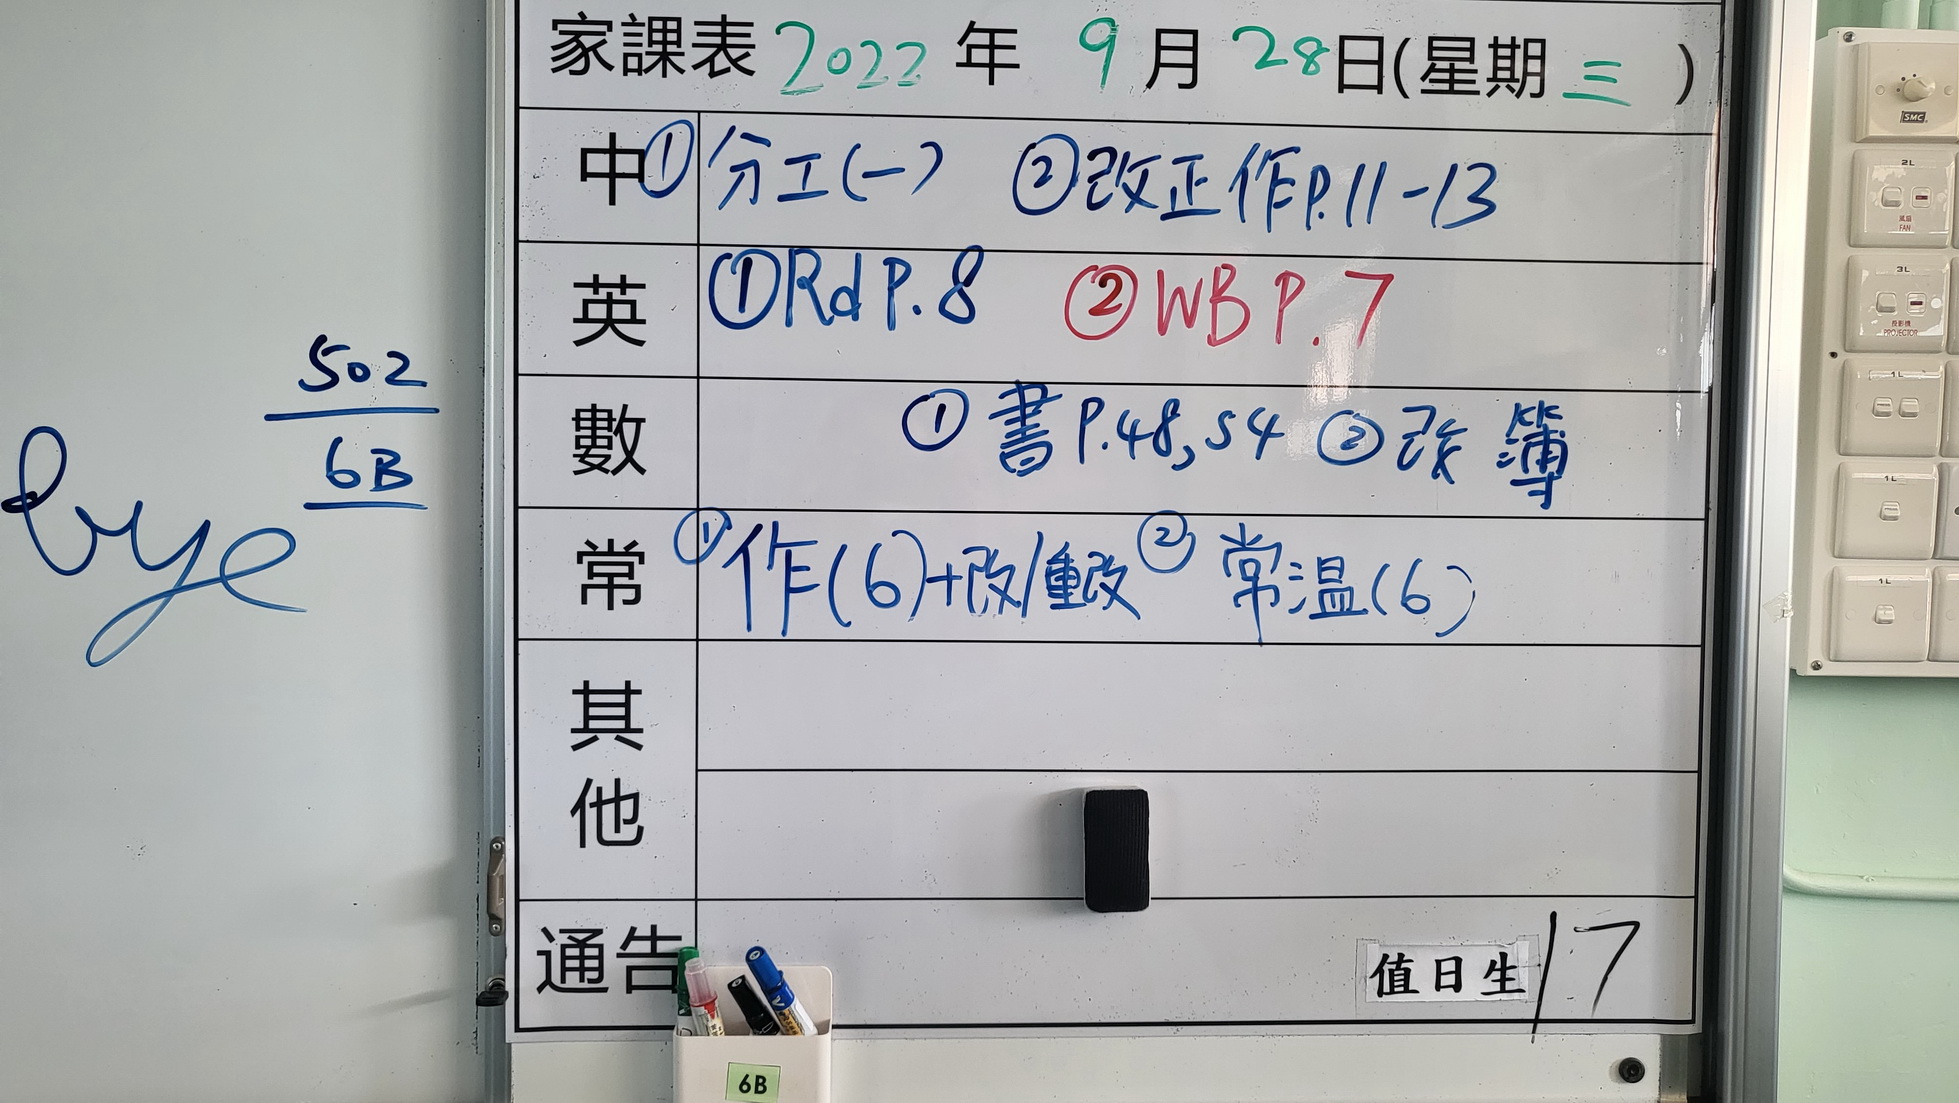 家課表 2022 年 9 月 28 日(星期 三 )
中 ① 分工(一) ② 改正作P.11-13
英 ① Rd P.8 ② WB P.7
數 ① 書 P.48,54 ② 改 簿
常 ① 作(6)+改/重改 ② 常溫(6)
其他
通告
值日生 17
502
6B
bye
6B
SMC
2L
風扇
FAN
3L
投影機
PROJECTOR
1L
1L
1L